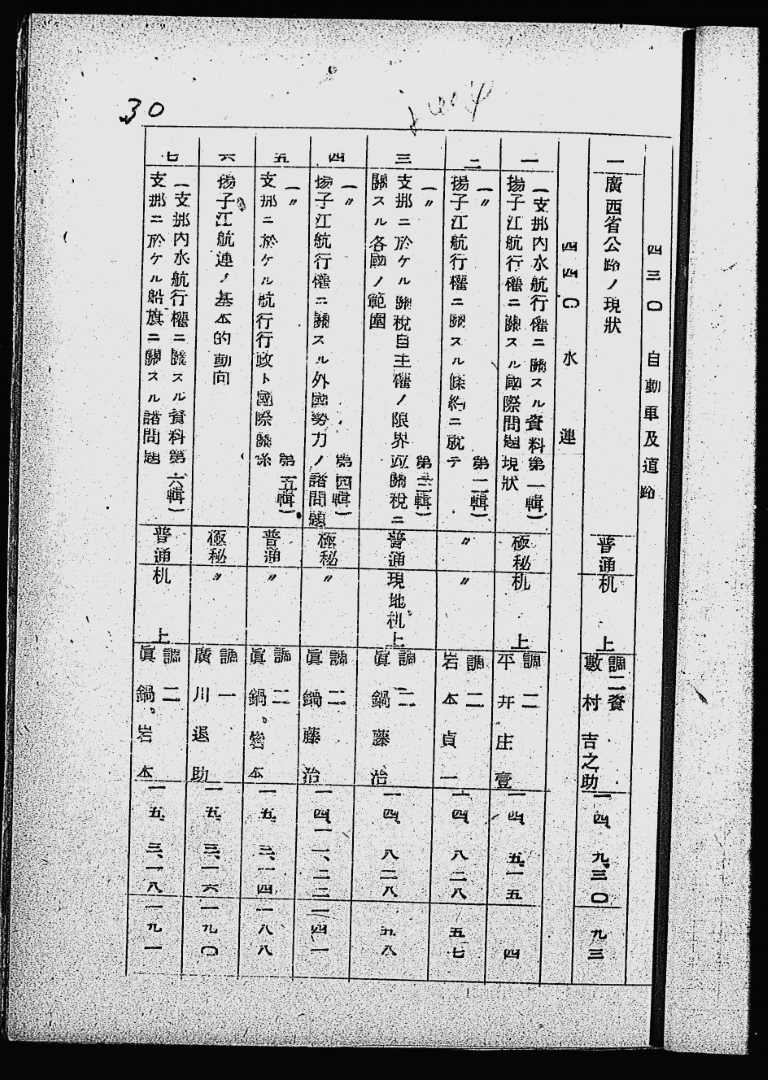 30
四三〇 自動車及道路
一 廣西省公路ノ現狀 普通 机上 調二資 敷村吉之助 一四、九、三〇 九三
四四〇 水運
一 (支那内水航行權ニ關スル資料第一輯) 
揚子江航行權ニ關スル國際問題現狀 極秘 机上 調二 平井庄壹 一四、五、一五 四
二 (〃 第二輯)
揚子江航行權ニ關スル條約ニ就テ 〃 〃 調二 岩本貞一 一四、八、二八 五七
三 (〃 第三輯)
支那ニ於ケル關稅自主權ノ限界竝關稅ニ
關スル各國ノ範圍 普通 現地机上 調二 眞鍋藤治 一四、八、二八 五八
四 (〃 第四輯)
揚子江航行權ニ關スル外國勢力ノ諸問題 極秘 〃 調二 眞鍋藤治 一四、一一、二二 一四一
五 (〃 第五輯)
支那ニ於ケル航行行政ト國際關係 普通 〃 調二 眞鍋、岩本 一五、三、一四 一八八
六 揚子江航運ノ基本的動向 極秘 〃 調一 廣川退助 一五、三、一六 一九〇
七 (支那内水航行權ニ關スル資料第六輯)
支那ニ於ケル船旗ニ關スル諸問題 普通 机上 調二 眞鍋、岩本 一五、三、一八 一九一